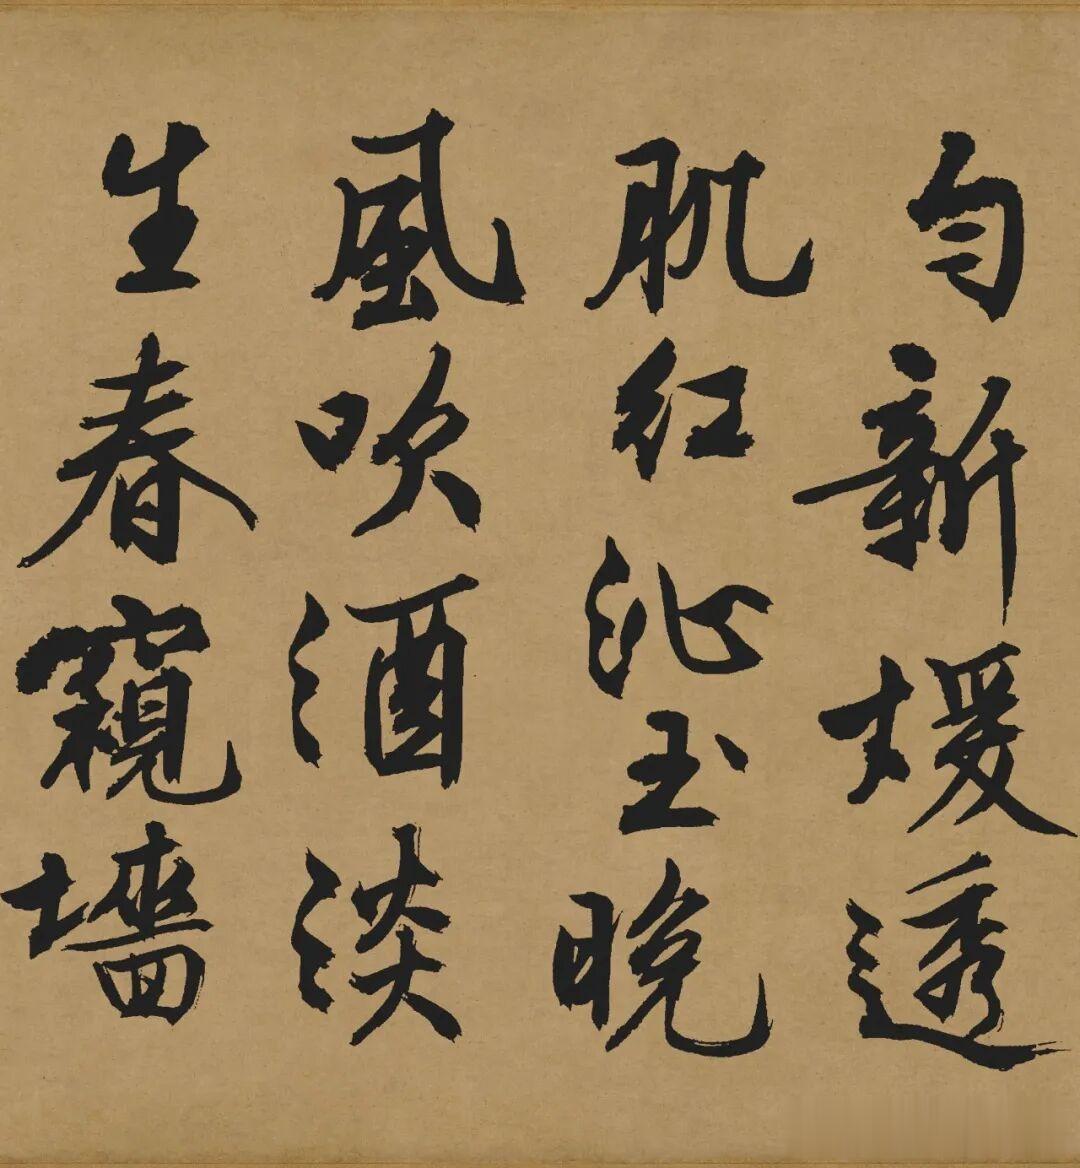 勻新煖透
肌紅沁玉晚
風吹酒淡
生春窺墻